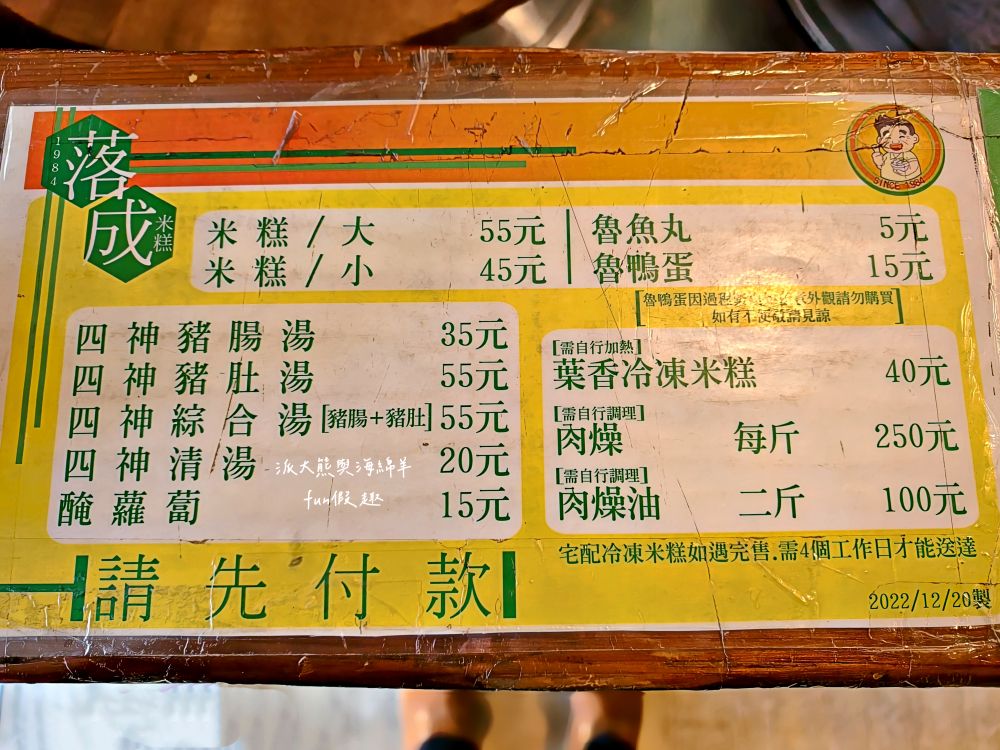 1984
落成
米糕
SINCE 1984
米糕/大 55元
米糕/小 45元
魯魚丸 5元
魯鴨蛋 15元
[魯鴨蛋因過程 外觀請勿購買
如有不便敬請見諒]
四神豬腸湯 35元
四神豬肚湯 55元
四神綜合湯[豬腸+豬肚] 55元
四神清湯 20元
醃蘿蔔 15元
[需自行加熱]
葉香冷凍米糕 40元
[需自行調理]
肉燥 每斤 250元
[需自行調理]
肉燥油 二斤 100元
宅配冷凍米糕如遇完售.需4個工作日才能送達
請先付款
2022/12/20製
派大熊與海綿羊
fun假趣